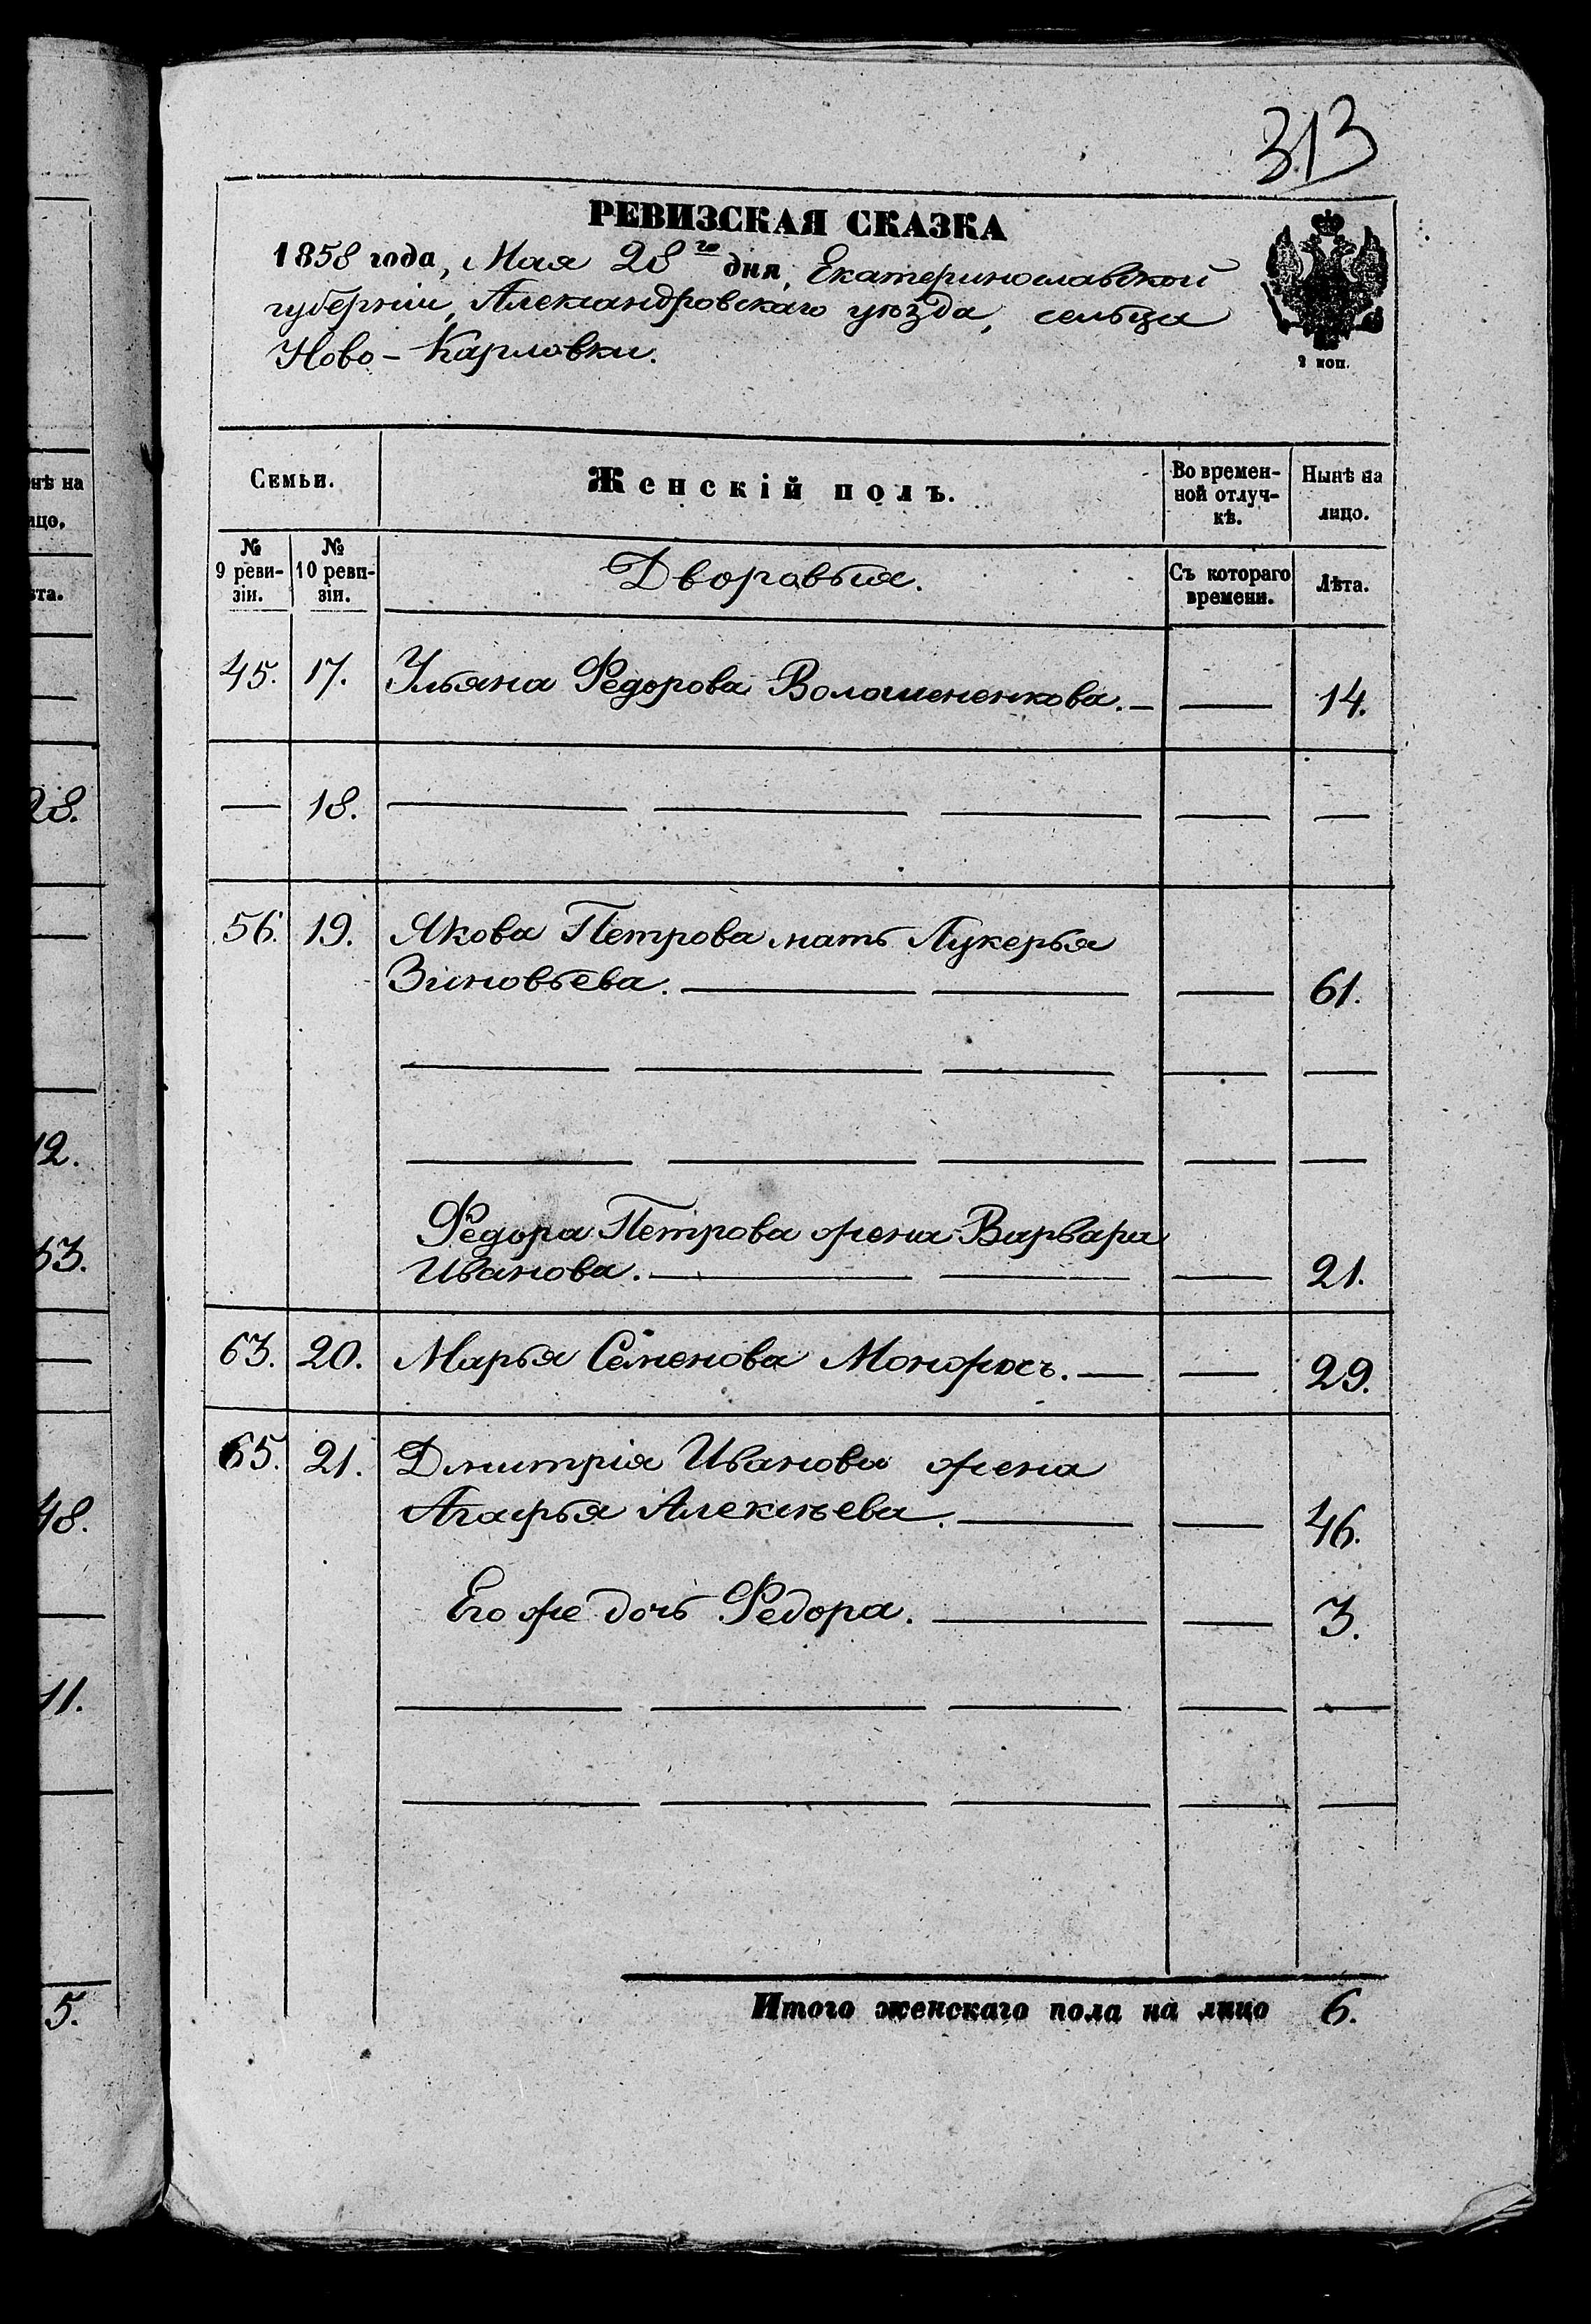 313
РЕВИЗСКАЯ СКАЗКА
1858 года, Мая 28го дня, Екатеринославской
губерніи, Александровскаго уѣзда, сельца
Ново-Карловки.
2 коп.
Семьи.
Женскій полъ.
Во времен-
ной отлуч-
кѣ.
Нынѣ на
лицо.
№
9 реви-
зіи.
№
10 реви-
зіи.
Дворовыя.
Съ котораго
времени.
Лѣта.
45. 17. Ульяна Федорова Волошененкова. — — 14.
— 18. — — — — —
56. 19. Якова Петрова мать Лукерья
Зиновьева. — — — 61.
— — — — —
— — — — —
Федора Петрова жена Варвара
Иванова. — — — 21.
63. 20. Марья Семенова — — 29.
65. 21. Дмитрія Иванова жена
Агафья Алексѣева. — — 46.
Его же дочь Федора. — — 3.
— — — — —
— — — — —
Итого женскаго пола на лицо 6.
нѣ на
ицо.
ѣта.
28.
12.
53.
48.
11.
5.